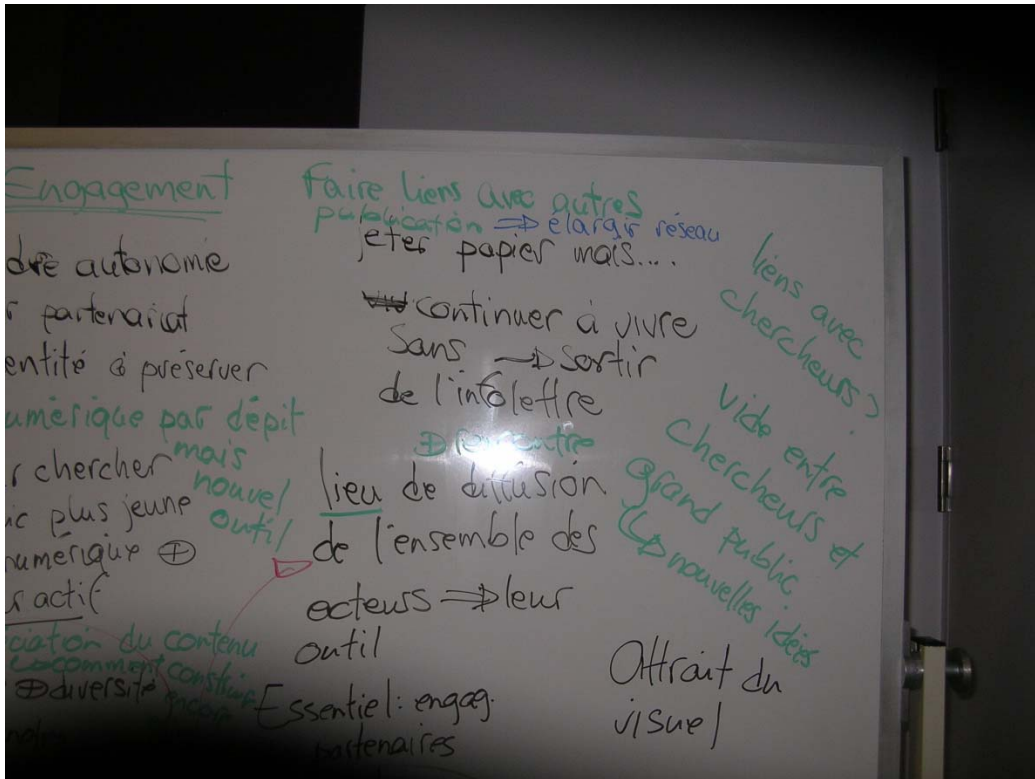 Engagement
dre autonomie
r partenariat
entité à préserver
umérique par dépit
r chercher mais
ic plus jeune nouvel
outil
numérique ⊕
r actif
ciation du contenu
comment construire
⊕ diversité encore
Faire liens avec autres
publication ⇒ élargir réseau
jeter papier mais....
continuer à vivre
sans → sortir
de l'infolettre
rencontre
lieu de diffusion
de l'ensemble des
acteurs ⇒ leur
outil
Essentiel: engag.
partenaires
liens avec
chercheurs?
vide entre
chercheurs et
grand public
↳ nouvelles idées
Attrait du
visuel